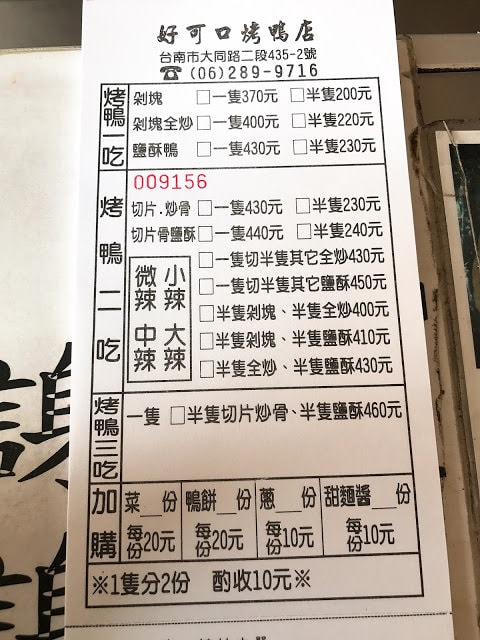 好可口烤鴨店
台南市大同路二段435-2號
☎ (06)289-9716
烤鴨一吃
剁塊 □一隻370元 □半隻200元
剁塊全炒 □一隻400元 □半隻220元
鹽酥鴨 □一隻430元 □半隻230元
009156
烤鴨二吃
切片.炒骨 □一隻430元 □半隻230元
切片骨鹽酥 □一隻440元 □半隻240元
□一隻切半隻其它全炒430元
□一隻切半隻其它鹽酥450元
□半隻剁塊、半隻全炒400元
□半隻剁塊、半隻鹽酥410元
□半隻全炒、半隻鹽酥430元
微辣 小辣
中辣 大辣
烤鴨三吃
一隻 □半隻切片炒骨、半隻鹽酥460元
加購
菜__份 鴨餅__份 蔥__份 甜麵醬__份
每份20元 每份20元 每份10元 每份10元
※1隻分2份 酌收10元※